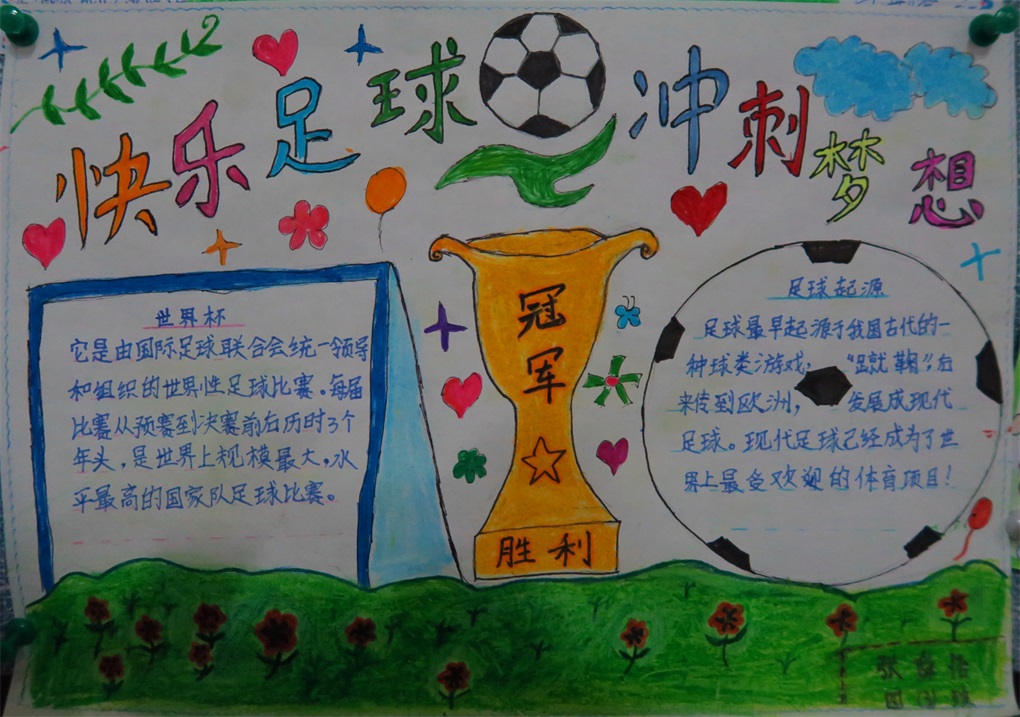 快乐足球冲刺梦想
世界杯
它是由国际足球联合会统一领导
和组织的世界性足球比赛。每届
比赛从预赛到决赛前后历时3个
年头,是世界上规模最大,水
平最高的国家队足球比赛。
冠
军
胜利
足球起源
足球最早起源于我国古代的一
种球类游戏,“蹴鞠”,后
来传到欧洲,发展成现代
足球。现代足球已经成为了世
界上最受欢迎的体育项目!
张